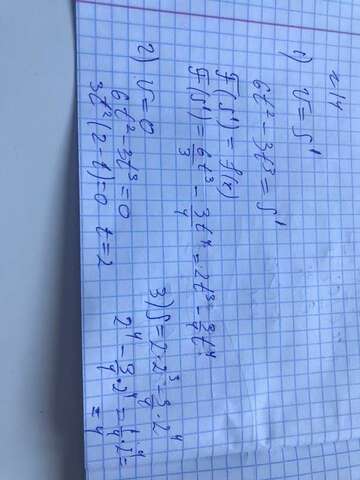 N14
1) V=S'
6t²-3t³=S'
F(S')=f(x)
F(S')=6/3 t³ - 3/4 t⁴ = 2t³ - 3/4 t⁴.
2) V=0
6t²-3t³=0
3t²(2-t)=0 t=2
3) S=2·2³-3/4·2⁴
2⁴-3/4·2⁴=1/4·2⁴=
=4